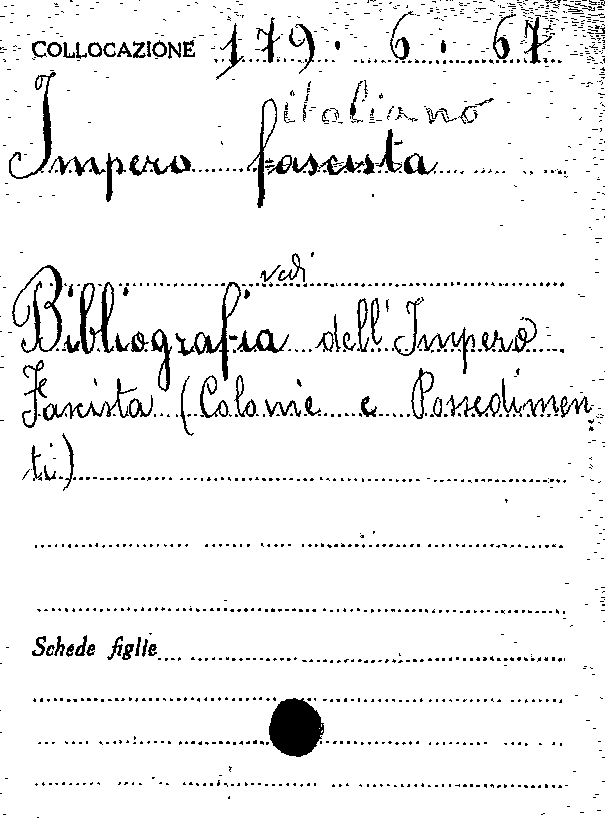 COLLOCAZIONE 179. 6. 67
italiano
Impero fascista
vedi
Bibliografia dell'Impero
Fascista (Colonie e Possedimen-
ti)
Schede figlie